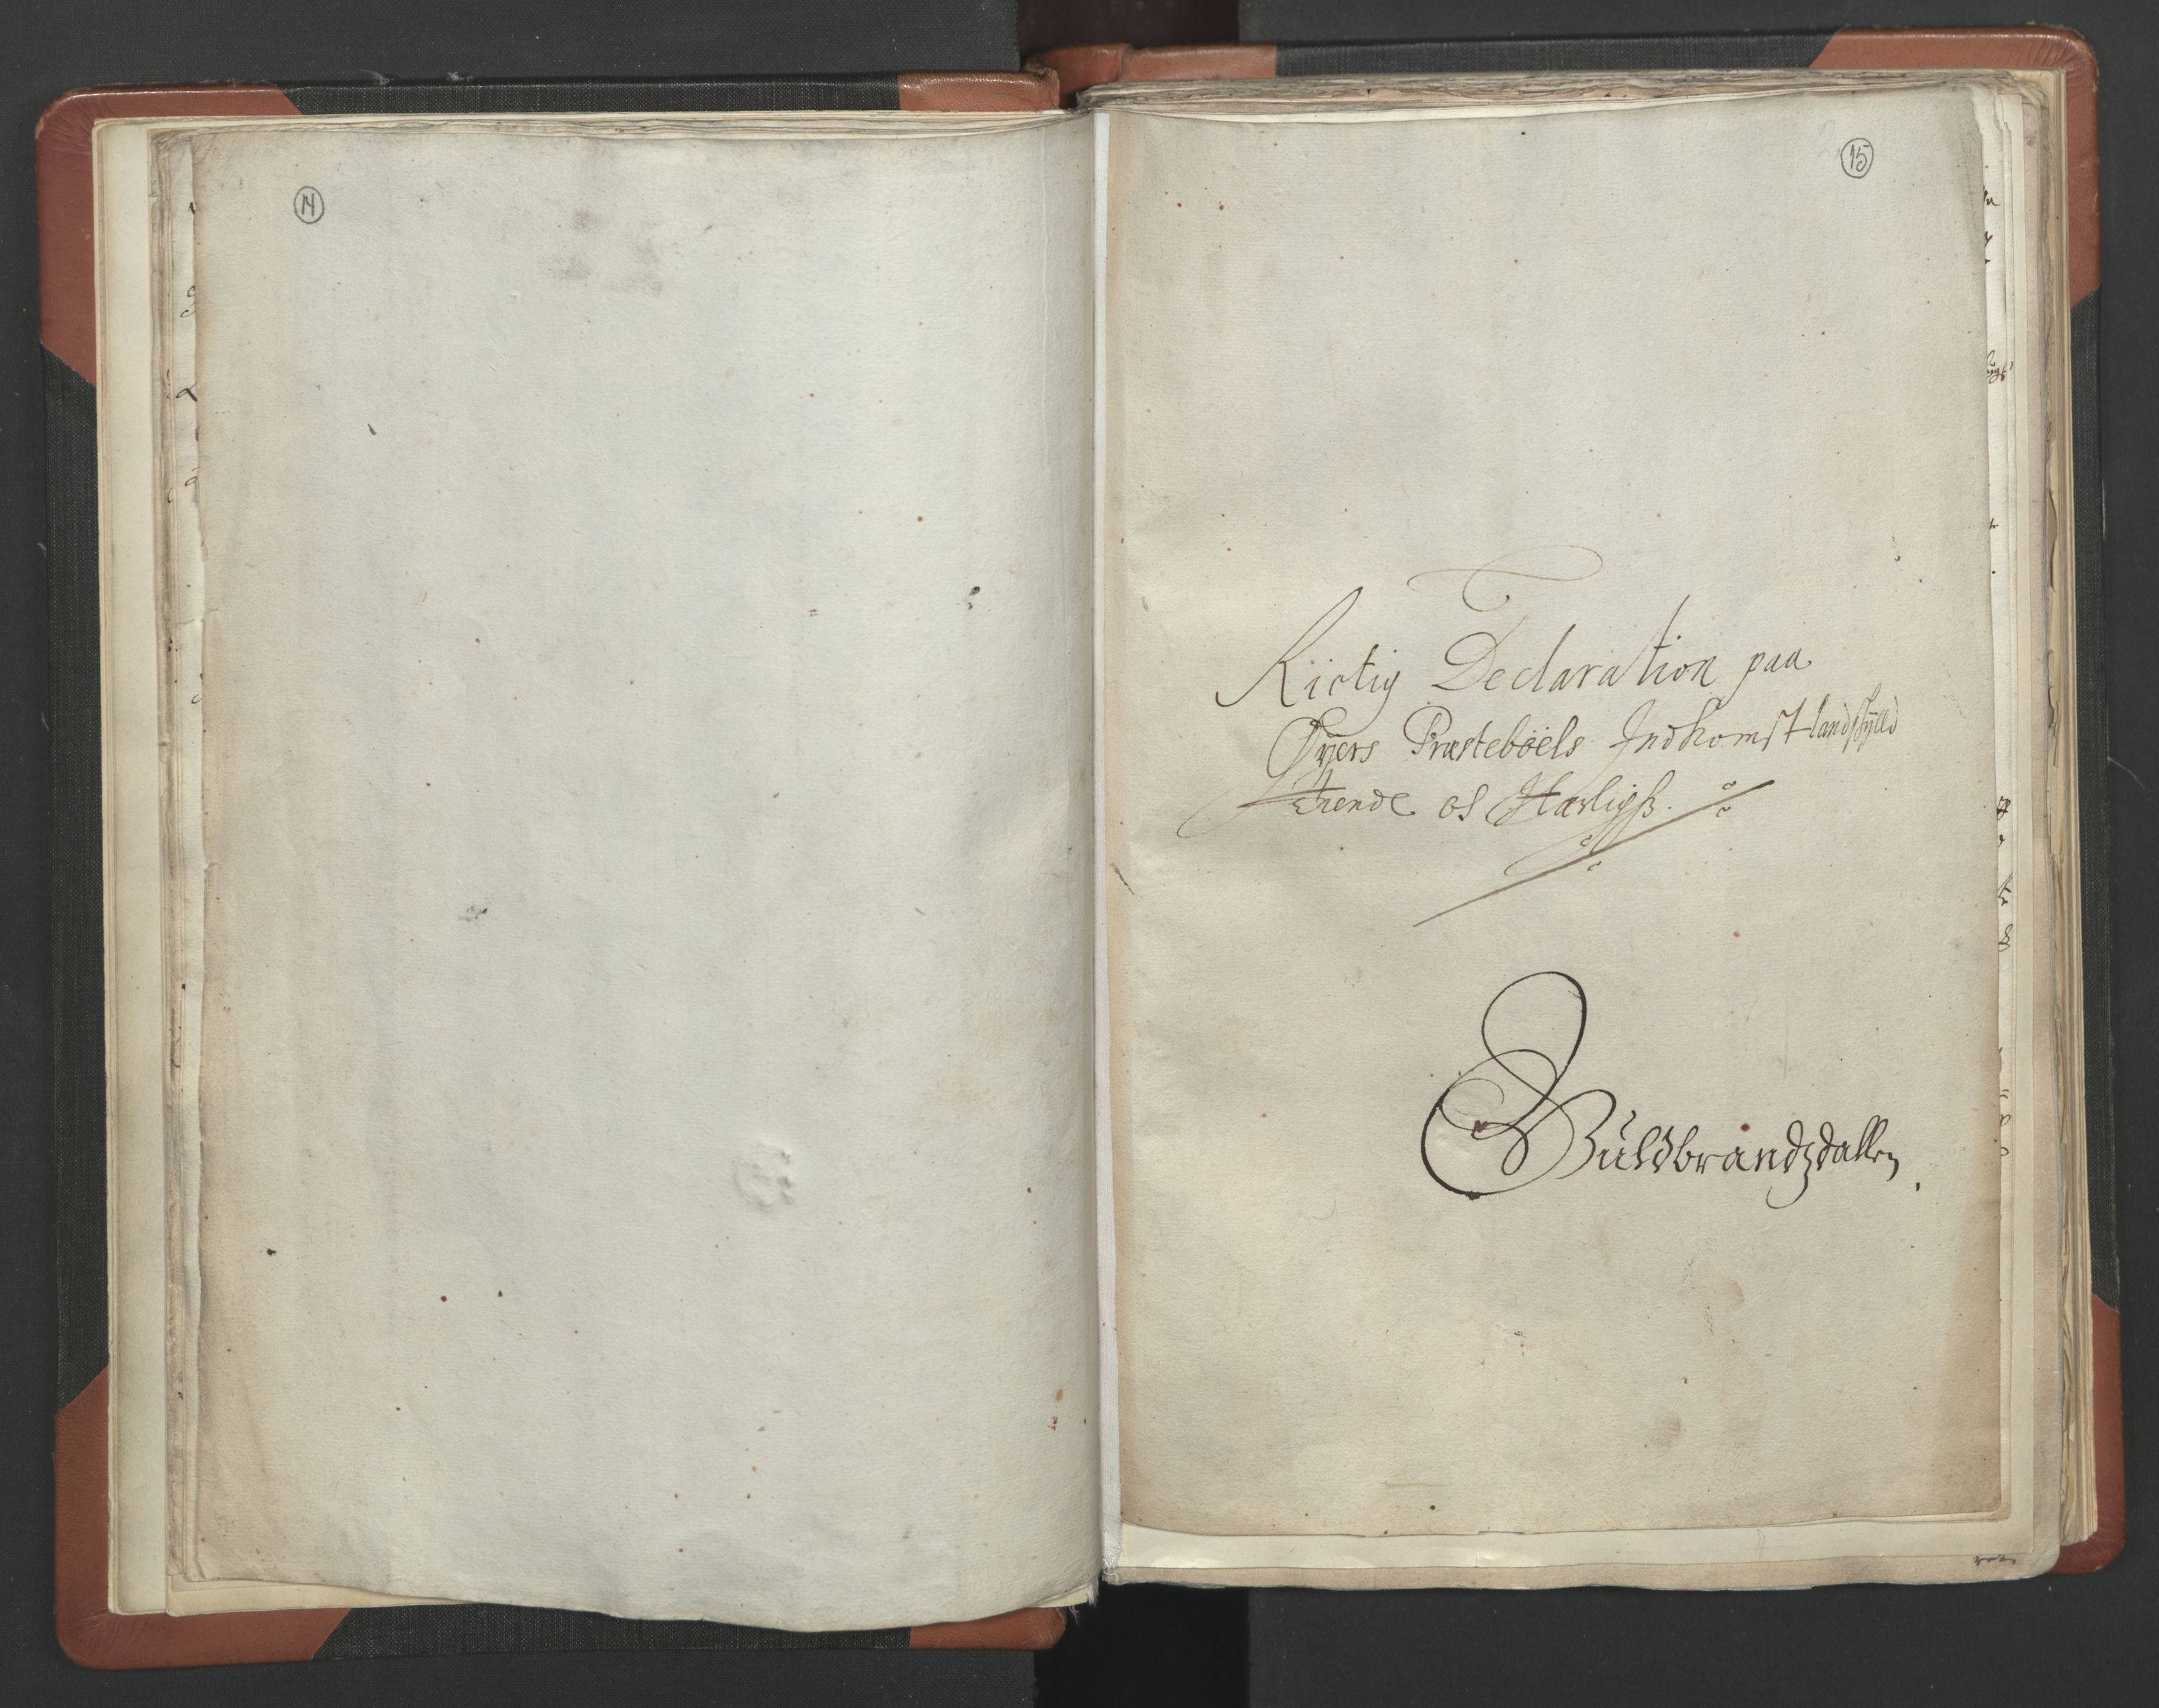 14
15
Rictig Declaration paa
Øyers Præsteboels Indkomst landskylld
tiende oc Herlighß.
Guldbrandzdallen